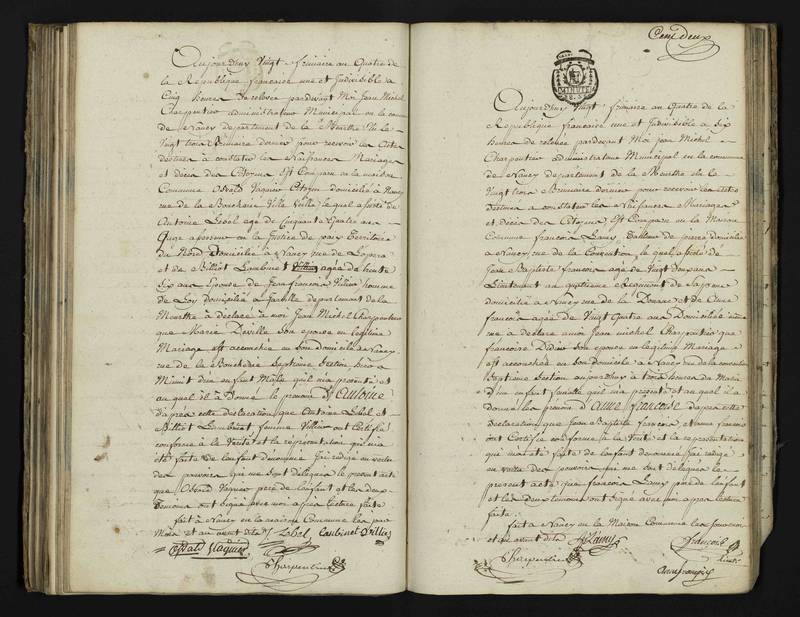 Aujourd'huy Vingt frimaire an Quatre de
la Republique francaise une et Indivisible a
Cinq heures De relevée pardevant Moi Jean Michel
Charpentier administrateur Municipal en la commune
de Nancy departement de la Meurthe Elu le
Vingt trois Brumaire dernier pour recevoir les actes
destinés a constater les Naissances Mariages
et décès des Citoyens Est Comparu en la maison
Commune Osvald Vaquier Citoyen domicilié a Nancy
rue de la Boucherie Ville Vielle lequel assisté de
Antoine Lebel agé de Cinquante Quatre ans
assesseur en la Justice de paix Territoire
du Nord Domicilié a Nancy rue de
et de Billiot Lambinet agée de trente
Six ans Epouse de Jean francois Villier homme
de Loy domicilié a departement de la
Meurthe a déclaré a moi Jean Michel Charpentier
que Marie Deville son epouse en legitime
Mariage est accouchée en son Domicile a Nancy
rue de la Boucherie Septieme Section hier a
Minuit d'un enfant Male qu'il m'a présenté et
au quel il a Donné le prenom d'Antoine
d'après cette déclaration que Antoine Lebel et
Billiot Lambinet femme Villier ont Certifié
conforme a la Verité et la représentation qui m'a
été faite de l'enfant denommé J'ai redigé en vertu
des pouvoirs qui me sont delegués le present acte
que Osvald Vaquier pere de l'enfant et les deux
Temoins ont signé avec moi après lecture faite
fait a Nancy en la maison Commune les jour
Mois et an avant dits Lebel Lanbinet Villier
Osvald Vaquier
Charpentier
Cent deux
Aujourd'huy Vingt frimaire an Quatre de la
Republique francaise une et Indivisible a Six
heures de relevée pardevant Moi jean Michel
Charpentier administrateur Municipal en la commune
de Nancy departement de la Meurthe élu le
Vingt trois Brumaire dernier pour recevoir les actes
destinés a constater les Naissances Mariages
et décès des Citoyens Est Comparu en la Maison
Commune francois Lamy Tailleur de pierre domicilié
a Nancy rue de la Convention lequel assisté de
Jean Baptiste francois agé de Vingt deux ans
Lieutenant au quatrieme Regiment de
domicilié a Nancy rue de la Douane et de Anne
francois agée de Vingt Quatre ans Domiciliée même
rue a déclaré a moi Jean michel Charpentier que
francoise Didier son epouse en legitime Mariage
est accouchée en son Domicile a Nancy rue de la convention
Septieme Section aujourd'huy a trois heures du Matin
d'un enfant femelle qu'il m'a présenté et au quel il a
donné les prenoms d'Anne francoise d'après cette
Déclaration que Jean Baptiste francois, et anne francois
ont Certifié conforme a la Verité et la représentation
qui m'a été faite de l'enfant denommé J'ai redigé
en vertu des pouvoirs qui me sont delegués le
present acte que francois Lamy pere de l'enfant
et les Deux temoins ont signé avec moi après lecture
faite
fait a Nancy en la Maison Commune les jour mois
et an avant dits f Lamy francois
Charpentier
Anne françois